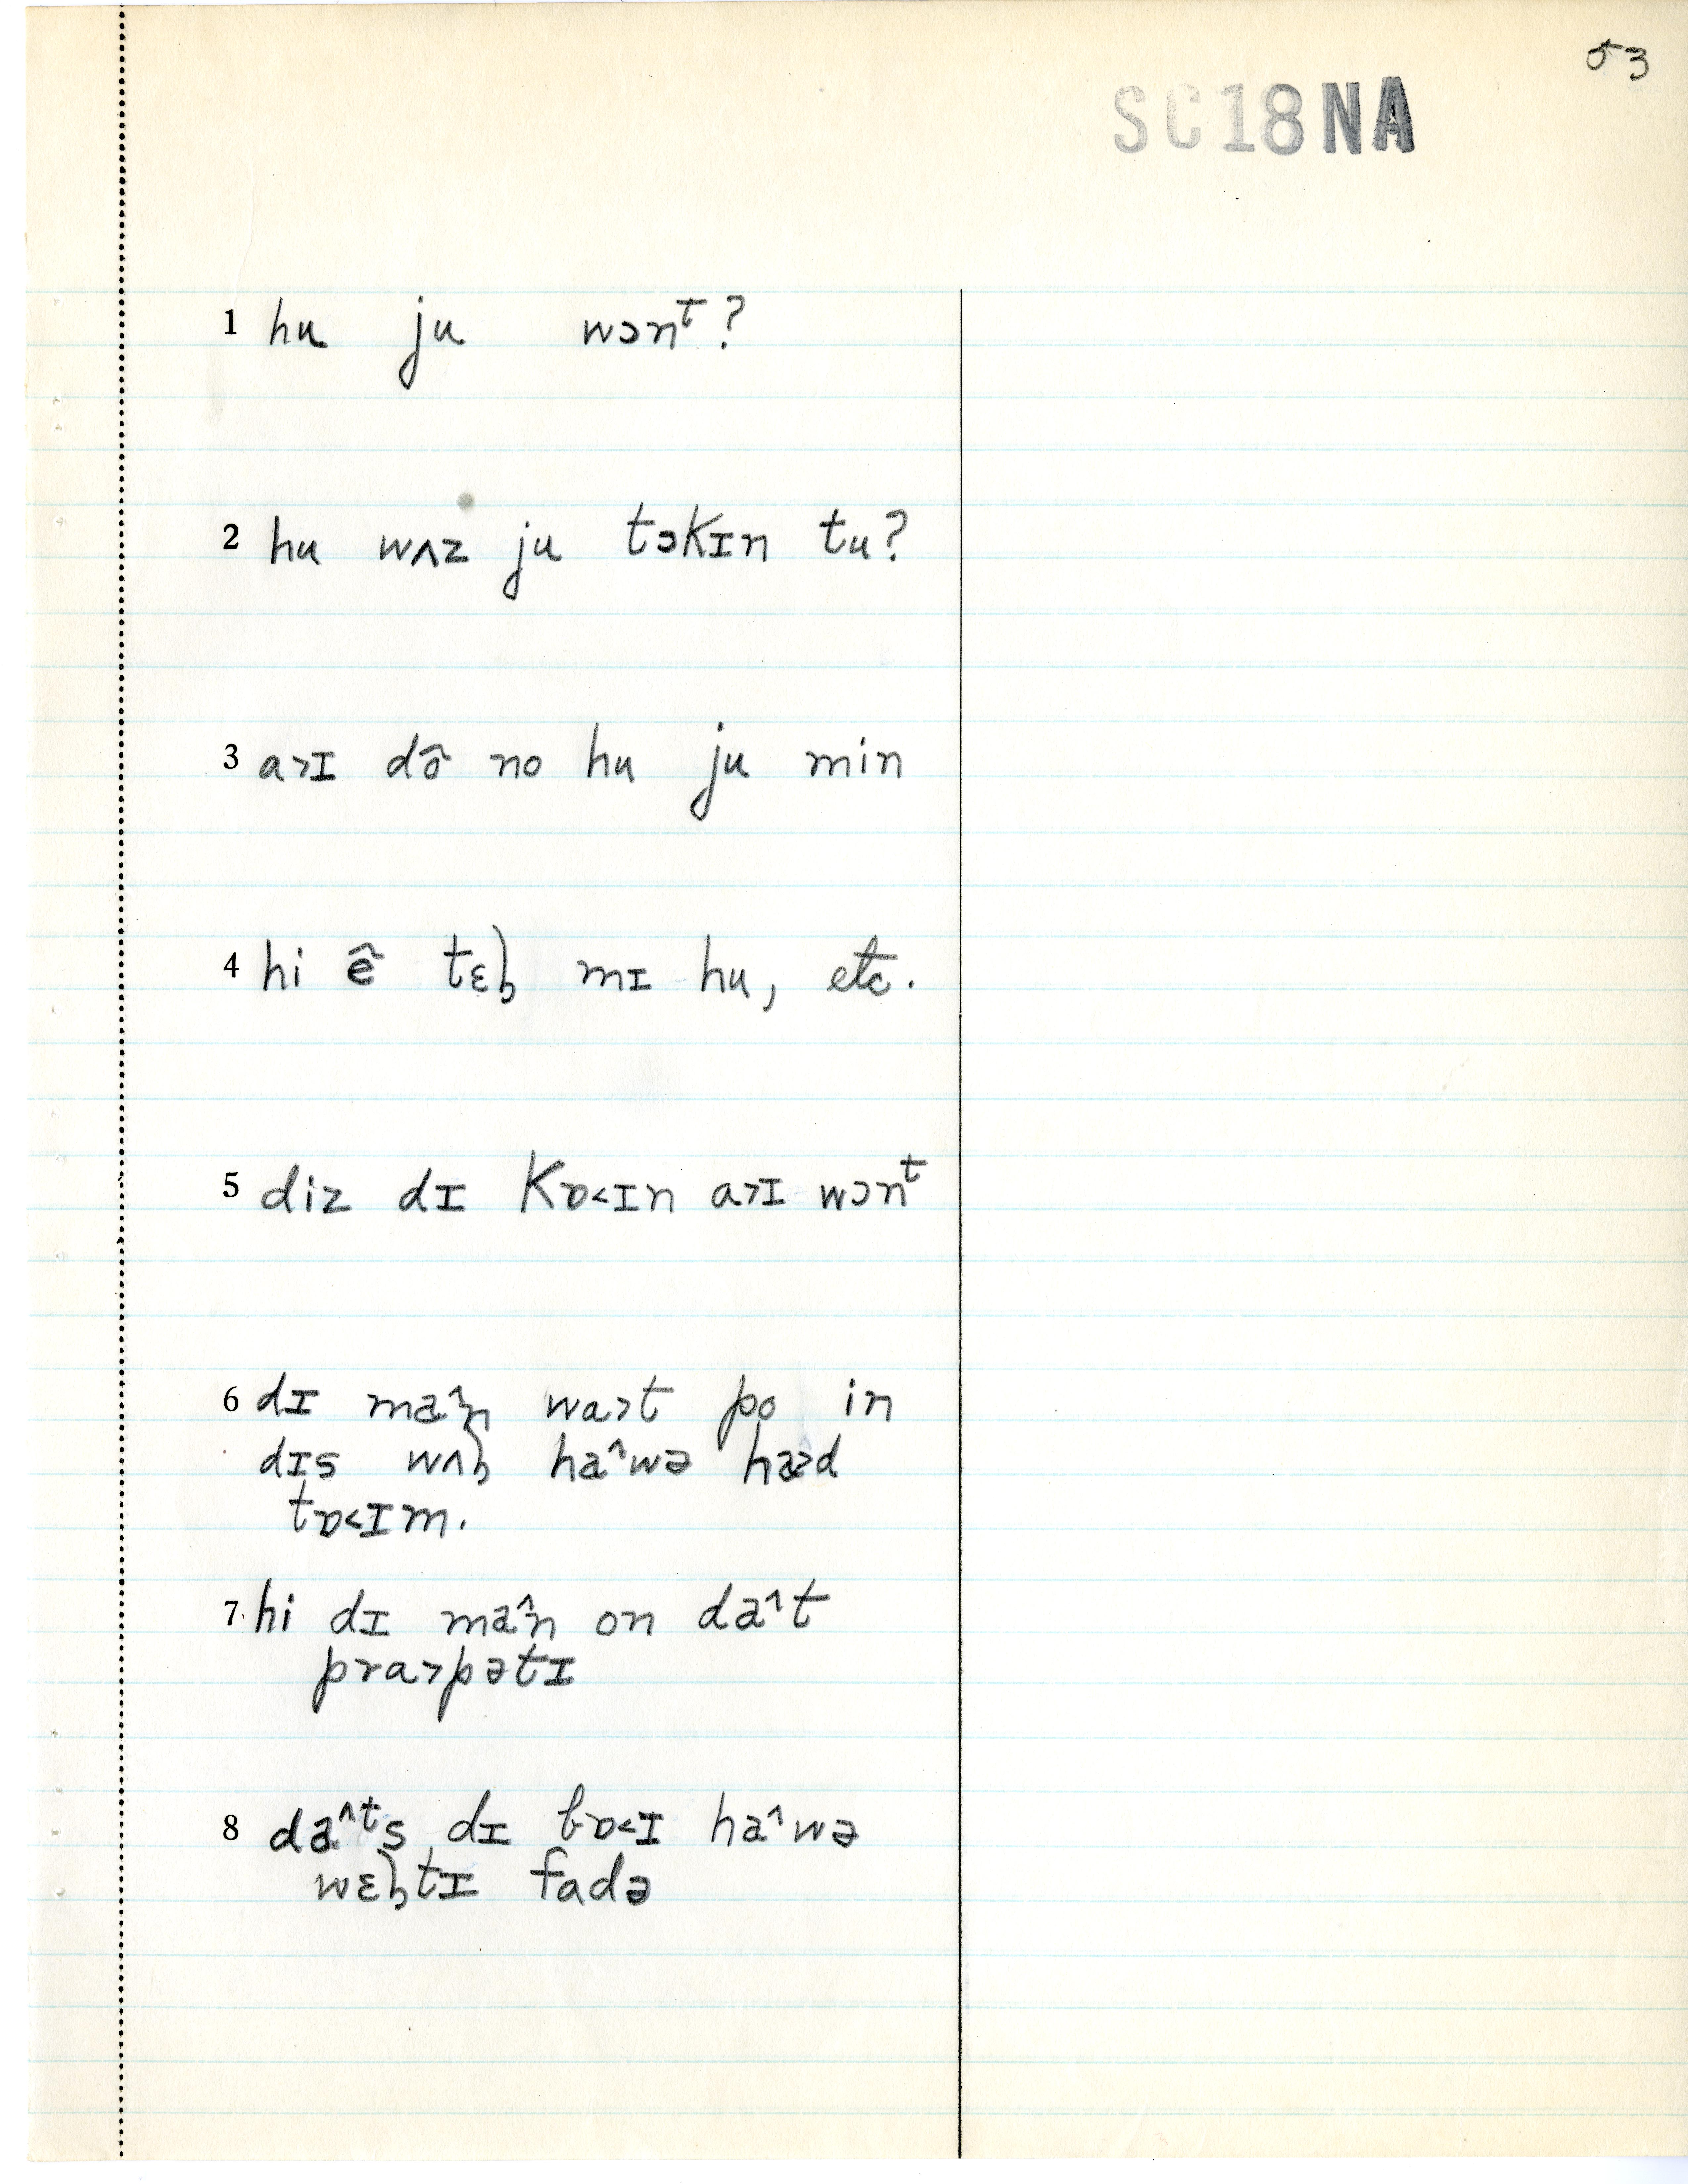 53
SC18NA
1 hu ju wɔnᵗ?
2 hu wʌz ju tɔkɪn tu?
3 a˃ɪ dõ̂ no hu ju min
4 hi ẽ̂ tɛl̡ mɪ hu, etc.
5 diz dɪ kɒ˂ɪn a˃ɪ wɔnᵗ
6 dɪ ma^n wa˃t po in
dɪs wʌl̡ ha^wə ha˃d
tɒ˂ɪm.
7 hi dɪ ma^n on da^t
pra˃pətɪ
8 da^ᵗs dɪ bɒ˂ɪ ha^wə
wɛl̡tɪ fadə